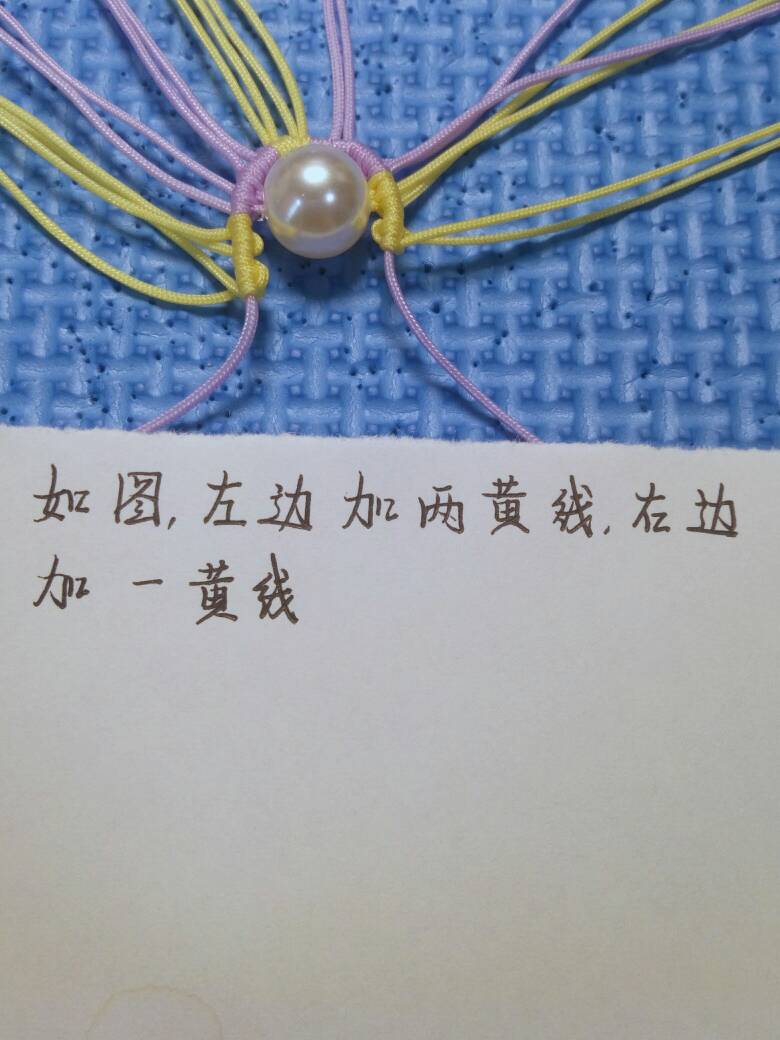 如图,左边加两黄线,右边
加一黄线